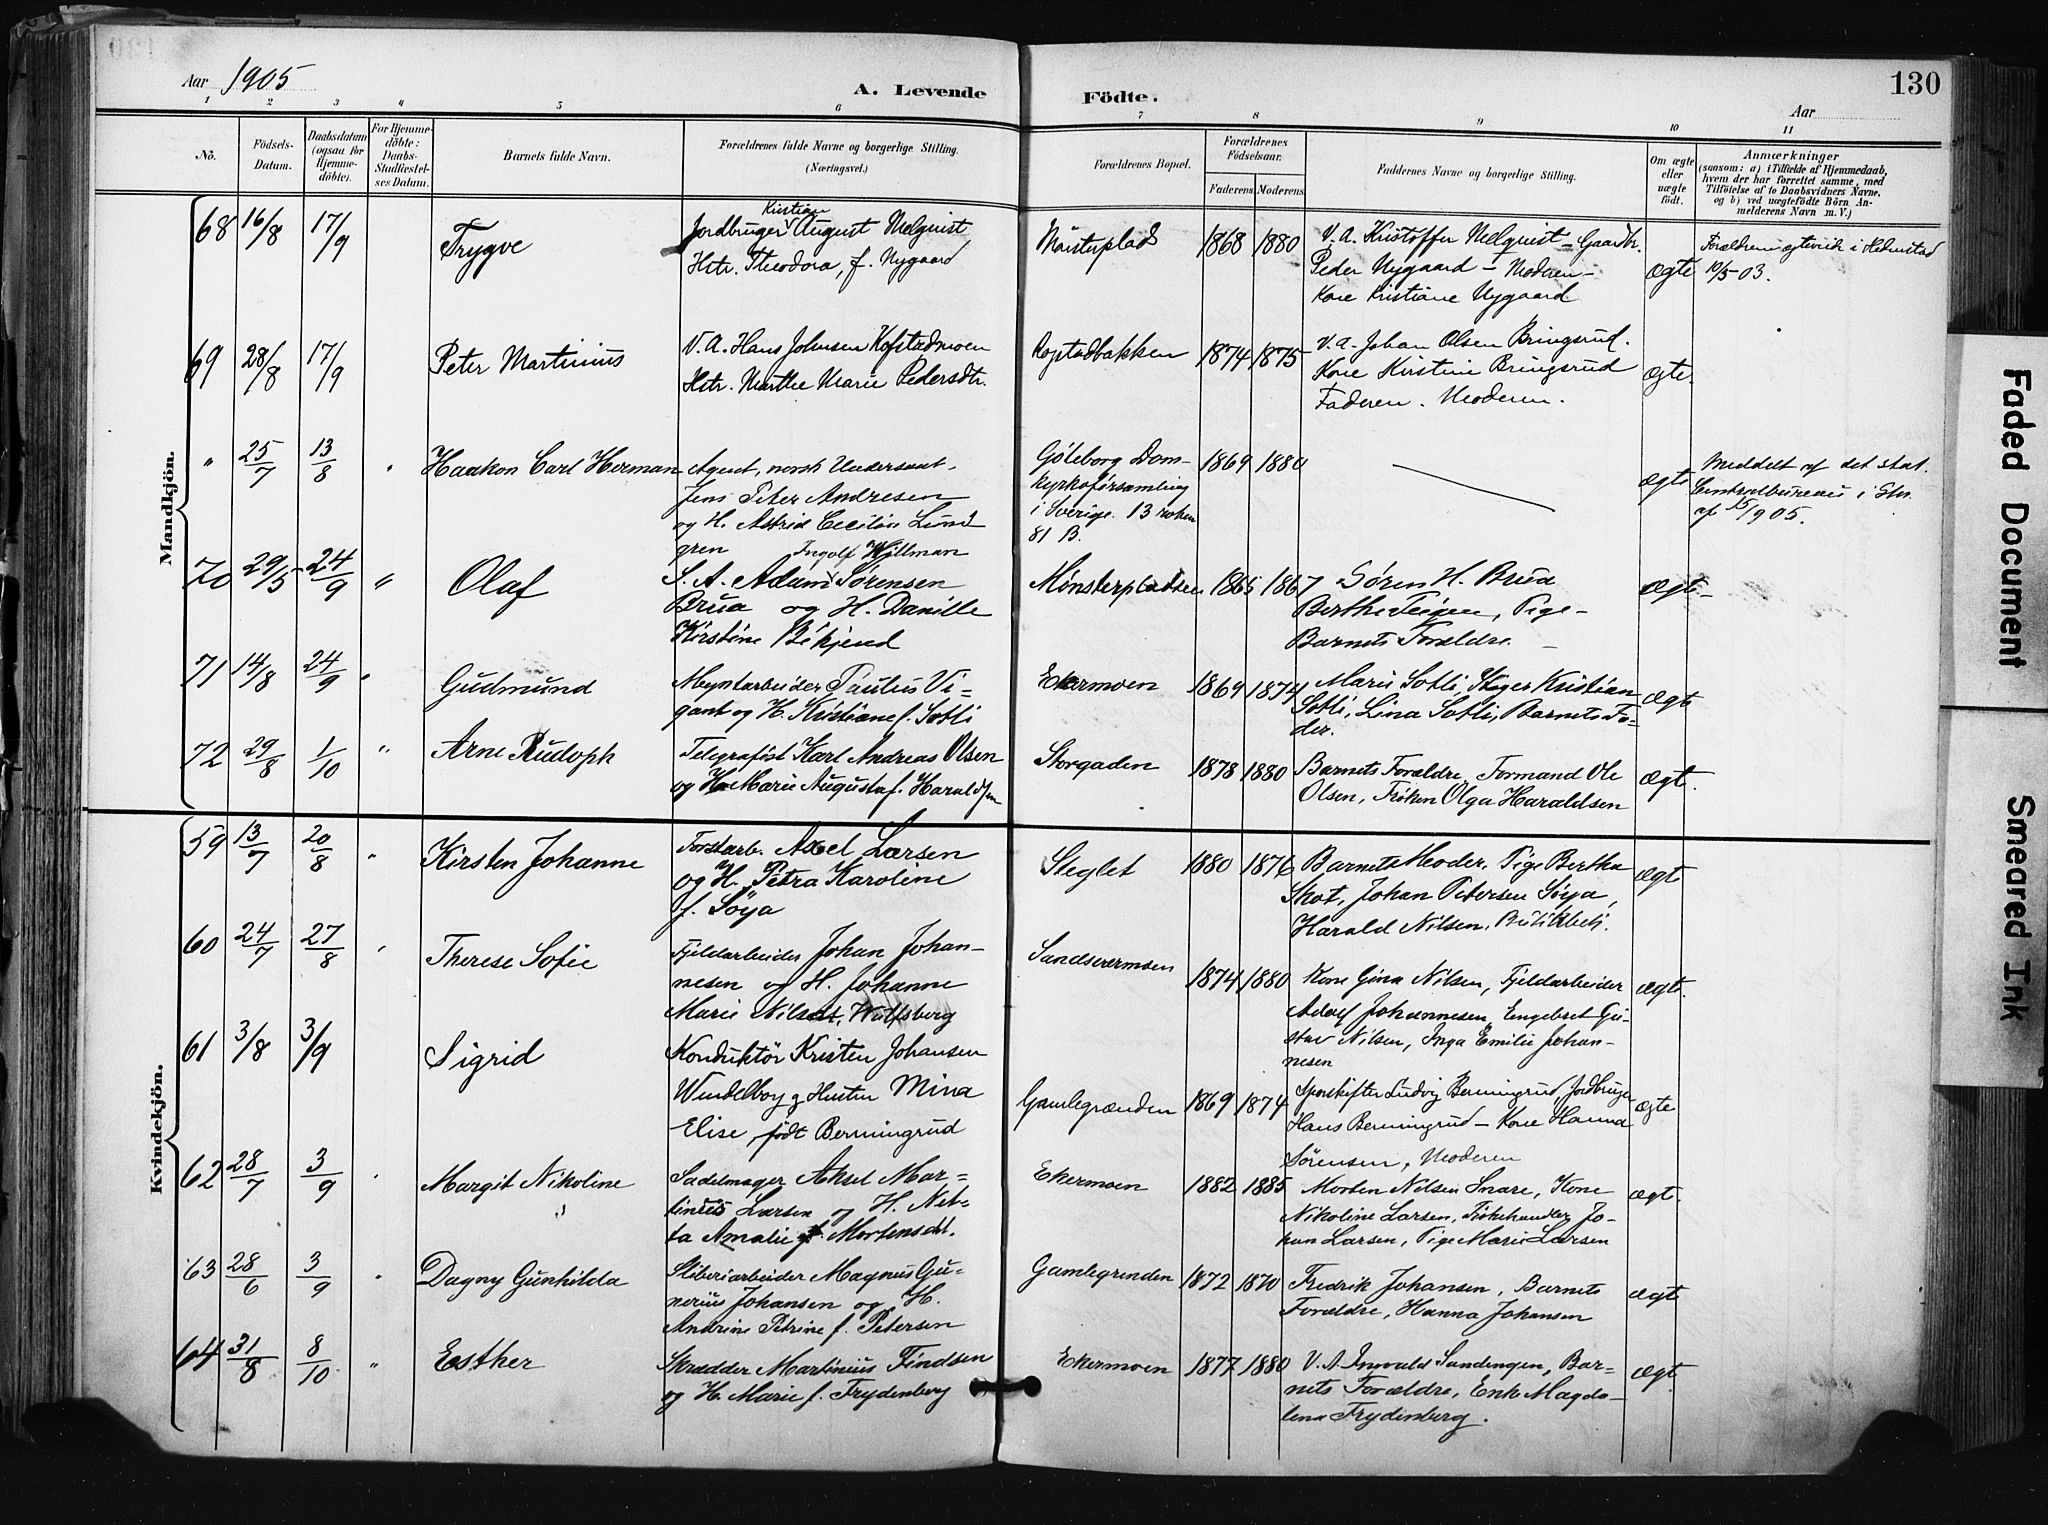 Aar 1905
A. Levende
Födte.
Aar
130
1 2 3 4 5 6 7 8 9 10 11
No.
Födsels-
Datum.
Daabsdatum
(ogsaa for
Hjemme-
döbte).
For Hjemme-
döbte:
Daabs-
Stadfæstel-
ses Datum.
Barnets fulde Navn.
Forældrenes fulde Navne og borgerlige Stilling.
(Næringsvei.)
Forældrenes Bopæl.
Forældrenes
Födselsaar.
Faderens. Moderens.
Faddernes Navne og borgerlige Stilling.
Om ægte
eller
uægte
födt.
Anmærkninger
(saasom: a) i Tilfælde af Hjemmedaab,
hvem der har forrettet samme, med
Tilföielse af to Daabsvidners Navne,
og b) ved uægtefödte Börn An-
melderens Navn m. V.)
Mandkjön.
68 16/8 17/9 Trygve
Kristian
Jordbruger August Melquist
Hstr. Theodora, f. Nygaard
Mønsterplads
1868 1880
V. A. Kristoffer Melquist - Gaardbr.
Peder Nygaard - Moderen -
Kone Kristiane Nygaard
ægte
Forældrene ægteviede i Hedenstad
10/5-03.
69 28/8 17/9 Peter Martinius
V. A. Hans Johnsen Kofstadmoen
Hstr. Marthe Marie Pedersdtr.
Kopstadbakken
1874 1875
V. A. Johan Olsen Bringsrud.
Kone Kirstine Bringsrud
Faderen. Moderen.
ægte.
" 25/7 13/8 " Haakon Carl Herman
Agent, norsk Undersaat,
Jens Peter Andresen
og H. Astrid Cecilia Lund
gren
Göteborg Dom-
kyrkoförsamling
i Sverige. 13 roten
81 B.
1869 1880
ægte
Meddelt af det stat.
Centralbureau i Skr.
af 1905.
70 29/5 24/9 " Olaf
Ingolf Hillman
S. A. Adam Sørensen
Brua og H. Danille
Kirstine Békjend
Mønsterpladsen
1865 1867
Søren H. Brua
Berthe Teigen, Pige -
Barnets Forældre.
ægte
71 14/8 24/9 " Gudmund
Myntarbeider Paulus Vi-
gant og H. Kristiane f. Sotli
Ekermoen
1869 1874
Marie Sotli, Kristian
Sotli, Lina Sotli, Barnets Fa-
der.
ægte
72 29/8 1/10 " Arne Rudoph
Telegrafist Karl Andreas Olsen
og H. Marie Augusta f. Haraldsen
Storgaden
1878 1880
Barnets Forældre, Formand Ole
Olsen, Frøken Olga Haraldsen
ægt.
Kvindekjön.
59 13/7 20/8 " Kirsten Johanne
Forstarb. Axel Larsen
og H. Petra Karoline
f. Søya
Steglet
1880 1876
Barnets Moder, Pige Bertha
Skot, Johan Petersen Søya,
Harald Nilsen, Butikbetj.
ægt
60 24/7 27/8 " Therese Sofie
Fjeldarbeider Johan Johan-
nesen og H. Johanne
Marie Nilsdt. Wulfsberg
Sandsværmoen
1874 1880
Kone Gina Nilsen, Fjeldarbeider
Adolf Johannesen, Engebret Gu-
stav Nilsen, Inga Emilie Johan-
nesen
ægt.
61 3/8 3/9 Sigrid
Konduktör Kristen Johansen
Windelboy g Hustru Mina
Elise, født Berningrud
Gamlegrænden
1869 1874
Sporskifter Ludvig Berningrud, Jordbruger
Hans Berningrud - Kone Hanna
Sørensen, Moderen
ægte
62 28/7 3/9 " Margit Nikoline
Sadelmager Aksel Mar-
tinius Larsen og H. Net-
ta Amalie f. Mortensdt.
Ekermoen
1882 1885
Morten Nilsen Snare, Kone
Nikoline Larsen, Fiskehandler Jo-
han Larsen, Pige Marie Larsen
ægt.
63 28/6 3/9 " Dagny Gunhilda
Sliberiarbeider Magnus Gu-
nerius Johansen og H.
Andrine Petrine f. Petersen
Gamlegrenden
1872 1870
Fredrik Johansen, Barnets
Forældre, Hanna Johansen
ægte
64 31/8 8/10 " Esther
Skrædder Martinius Findsen
og H. Marie f. Frydenberg
Ekermoen
1877 1880
V. A. Ingvald Sandengen, Bar-
nets Forældre, Enke Magda-
lena Frydenberg.
ægt.
Faded Document
Smeared Ink